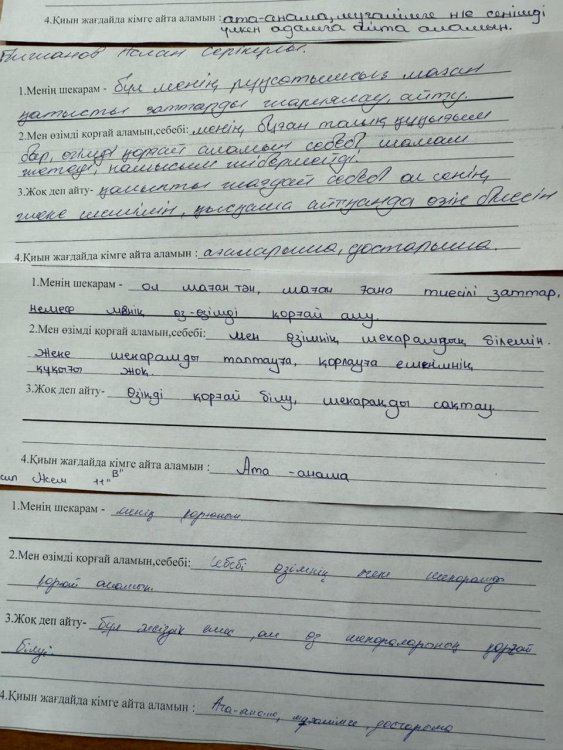 4.Қиын жағдайда кімге айта аламын : ата-анама, мұғалімге не сенімді
үлкен адамға айта аламын.
Аслан Серікұлы.
1.Менің шекарам - бұл менің рұқсатымсыз маған
қатысты заттарды жариялау, айту.
2.Мен өзімді қорғай аламын,себебі: менің бұған толық құқығым
бар, өзімді қорғай аламын себебі, шамам
жетеді, намысым жібермейді.
3.Жоқ деп айту- себебі ол сенің
жеке шешімің, қысқаша айтқанда өзің білесің
4.Қиын жағдайда кімге айта аламын : ағаларыма, достарыма.
1.Менің шекарам - ол маған тән, маған ғана тиесілі заттар,
немесе менің өз-өзімді қорғай алу.
2.Мен өзімді қорғай аламын,себебі: мен өзімнің шекарамдың білемін.
Жеке шекарамды таптауға, қорлауға ешкімнің
құқығы жоқ.
3.Жоқ деп айту- Өзіңді қорғай білу, шекараңды сақтау.
4.Қиын жағдайда кімге айта аламын : Ата -анама
11 "В"
1.Менің шекарам - менің қорғаным
2.Мен өзімді қорғай аламын,себебі: Себебі өзімнің жеке шекарамды
қорғай аламын.
3.Жоқ деп айту- бұл әлсіздік емес, ал өз шекараларыңның қорғай
білуі
4.Қиын жағдайда кімге айта аламын : Ата-анама, мұғаліміме, достарыма